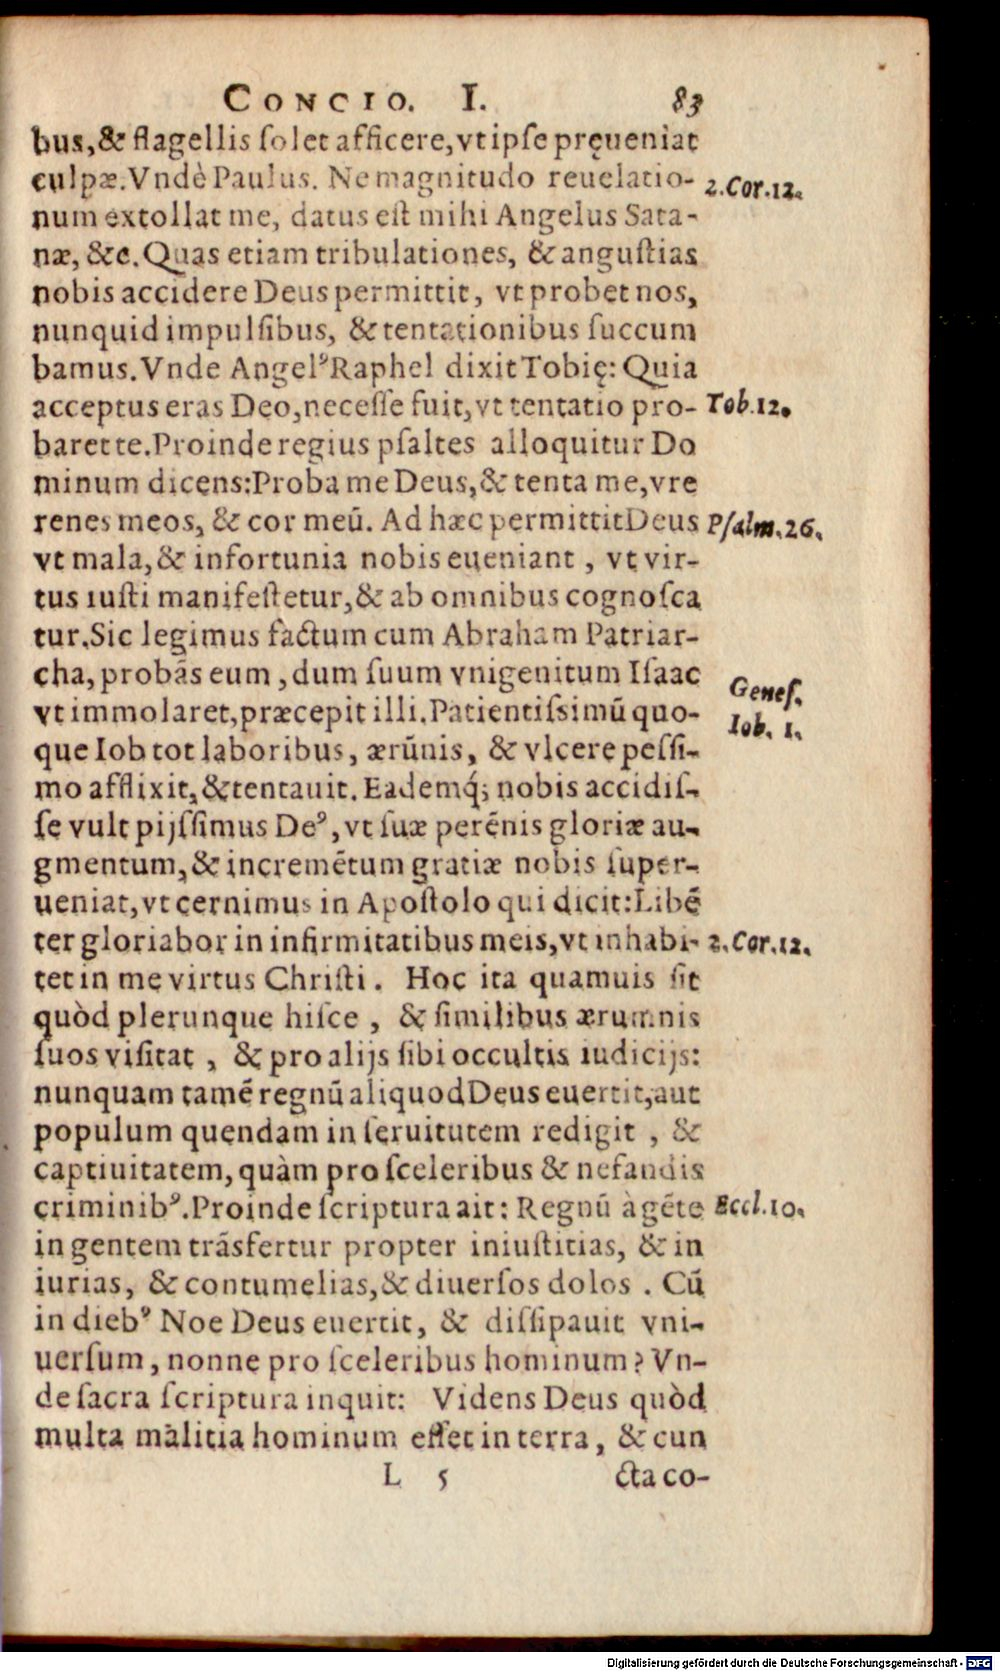 CONCIO. I. 83
bus,& flagellis ſolet afficere,vt ipſe pręueniàt
culpæ.Vndè Paulus. Ne magnitudo reuelatio- 2.Cor.12.
num extollat me, datus eſt mihi Angelus Sata-
næ, &c.Quas etiam tribulationes, & anguſtias
nobis accidere Deus permittit, vt probet nos,
nunquid impulſibus, & tentationibus ſuccum
bamus.Vnde Angelꝰ Raphel dixit Tobię: Quia
acceptus eras Deo,neceſſe fuit,vt tentatio pro- Tob.12.
baret te.Proinde regius pſaltes alloquitur Do
minum dicens:Proba me Deus,& tenta me,vre
renes meos, & cor meũ. Ad hæc permittit Deus Pſalm.26.
vt mala,& infortunia nobis eueniant , vt vir-
tus iuſti manifeſtetur,& ab omnibus cognoſca
tur.Sic legimus fàctum cum Abraham Patriar-
cha, probãs eum , dum ſuum vnigenitum Iſaac Geneſ.
vt immolaret,præcepit illi.Patientiſsimũ quo- Iob. 1.
que Iob tot laboribus, ærũnis, & vlcere peſſi-
mo afflixit,&tentauit. Eademq́; nobis accidiſ-
ſe vult pijſſimus Deꝰ, vt ſuæ perẽnis gloriæ au-
gmentum,& incremẽtum gratiæ nobis ſuper-
ueniat,vt cernimus in Apoſtolo qui dicit:Libẽ
ter gloriabor in infirmitatibus meis,vt inhabi- 2.Cor.12.
tet in me virtus Chriſti. Hoc ita quamuis ſit
quòd plerunque hiſce , & ſimilibus ærumnis
ſuos viſitat , & pro alijs ſibi occultis iudicijs:
nunquam tamẽ regnũ aliquod Deus euertit,aut
populum quendam in ſeruitutem redigit , &
captiuitatem, quàm pro ſceleribus & nefandis
criminibꝰ.Proinde ſcriptura ait: Regnũ à gẽte Eccl.10.
in gentem trãsfertur propter iniuſtitias, & in
iurias, & contumelias,& diuerſos dolos . Cũ
in diebꝰ Noe Deus euertit, & diſſipauit vni-
uerſum, nonne pro ſceleribus hominum? Vn-
de ſacra ſcriptura inquit: Videns Deus quòd
multa màlitia hominum eſſet in terra, & cun
L 5 cta co-
Digitalisierung gefördert durch die Deutsche Forschungsgemeinschaft - DFG